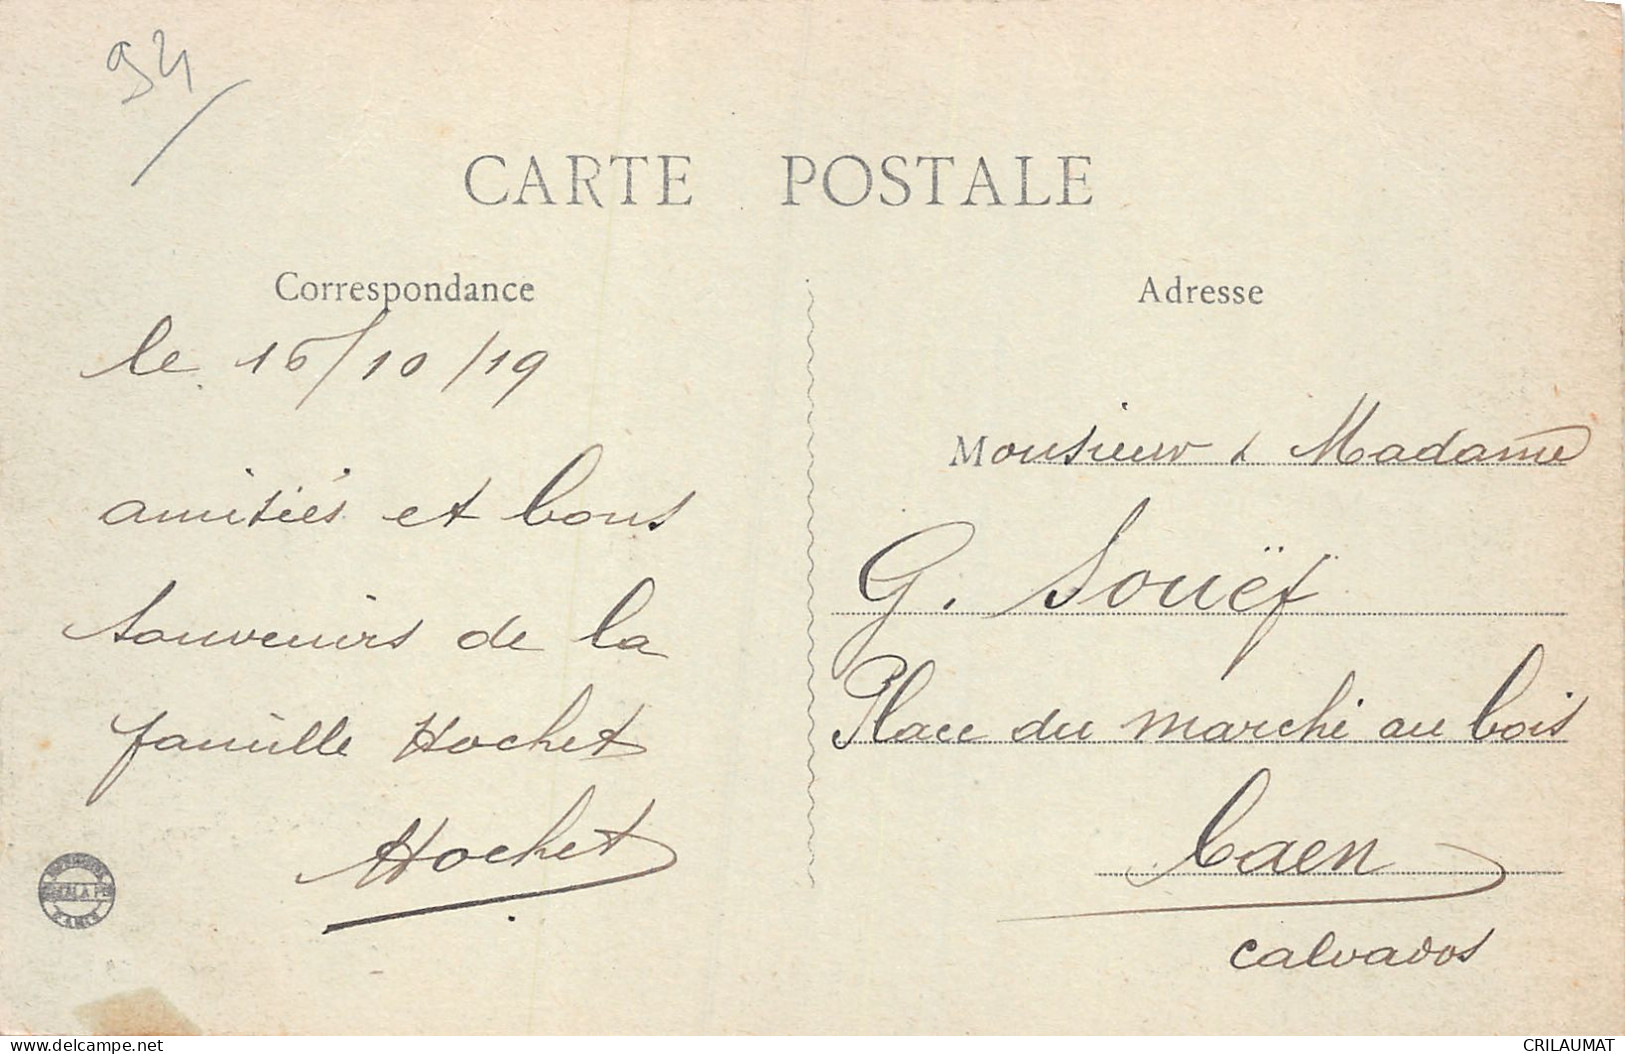 94
CARTE POSTALE
Correspondance
le 16/10/19
amitiés et bons
souvenirs de la
famille Hochet
Hochet
Adresse
Monsieur & Madame
G. Souëf
Place du marché au bois
Caen
Calvados
www.delcampe.net
CRILAUMAT